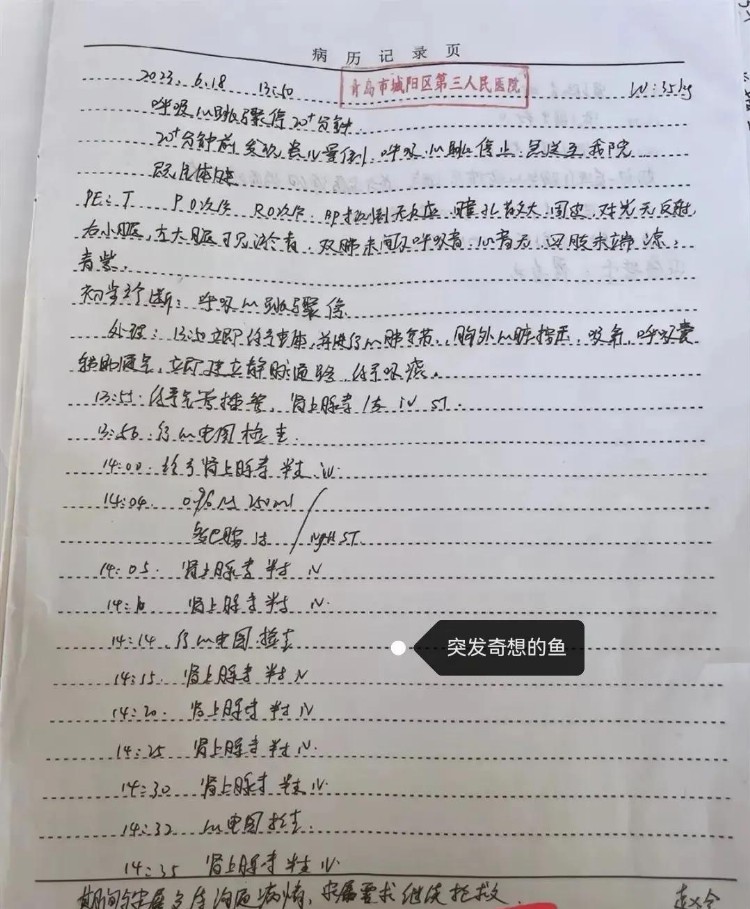 病历记录页
2023.6.18 13:50 青岛市城阳区第三人民医院 W:35kg
呼吸心跳骤停20+分钟
20+分钟前,发现患儿晕倒,呼吸心跳停止,急送至我院
既往体健
PE: T P 0次/分 R 0次/分 瞳孔散大固定,对光无反射,
右小腿,左大腿可见 双肺未闻及呼吸音,心音无,四肢末端凉,
青紫。
初步诊断:呼吸心跳骤停
处理:13:50立即 并进行心肺复苏,胸外心脏按压,吸氧,呼吸囊
辅助通气,立即建立静脉通路,给予吸痰。
13:51:给予气管插管,肾上腺素1支 iv ST.
13:56:行心电图检查
14:00:给予肾上腺素半支 iv.
14:04. 250ml
多巴胺 ST
14:05 肾上腺素半支 iv
14:10 肾上腺素半支 iv.
14:14.行心电图检查
突发奇想的鱼
14:15. 肾上腺素半支 iv
14:20. 肾上腺素半支 iv.
14:25 肾上腺素半支 iv.
14:30 肾上腺素半支 iv.
14:32 心电图检查
14:35 肾上腺素半支 iv.
期间与家属多次沟通病情,家属要求继续抢救.